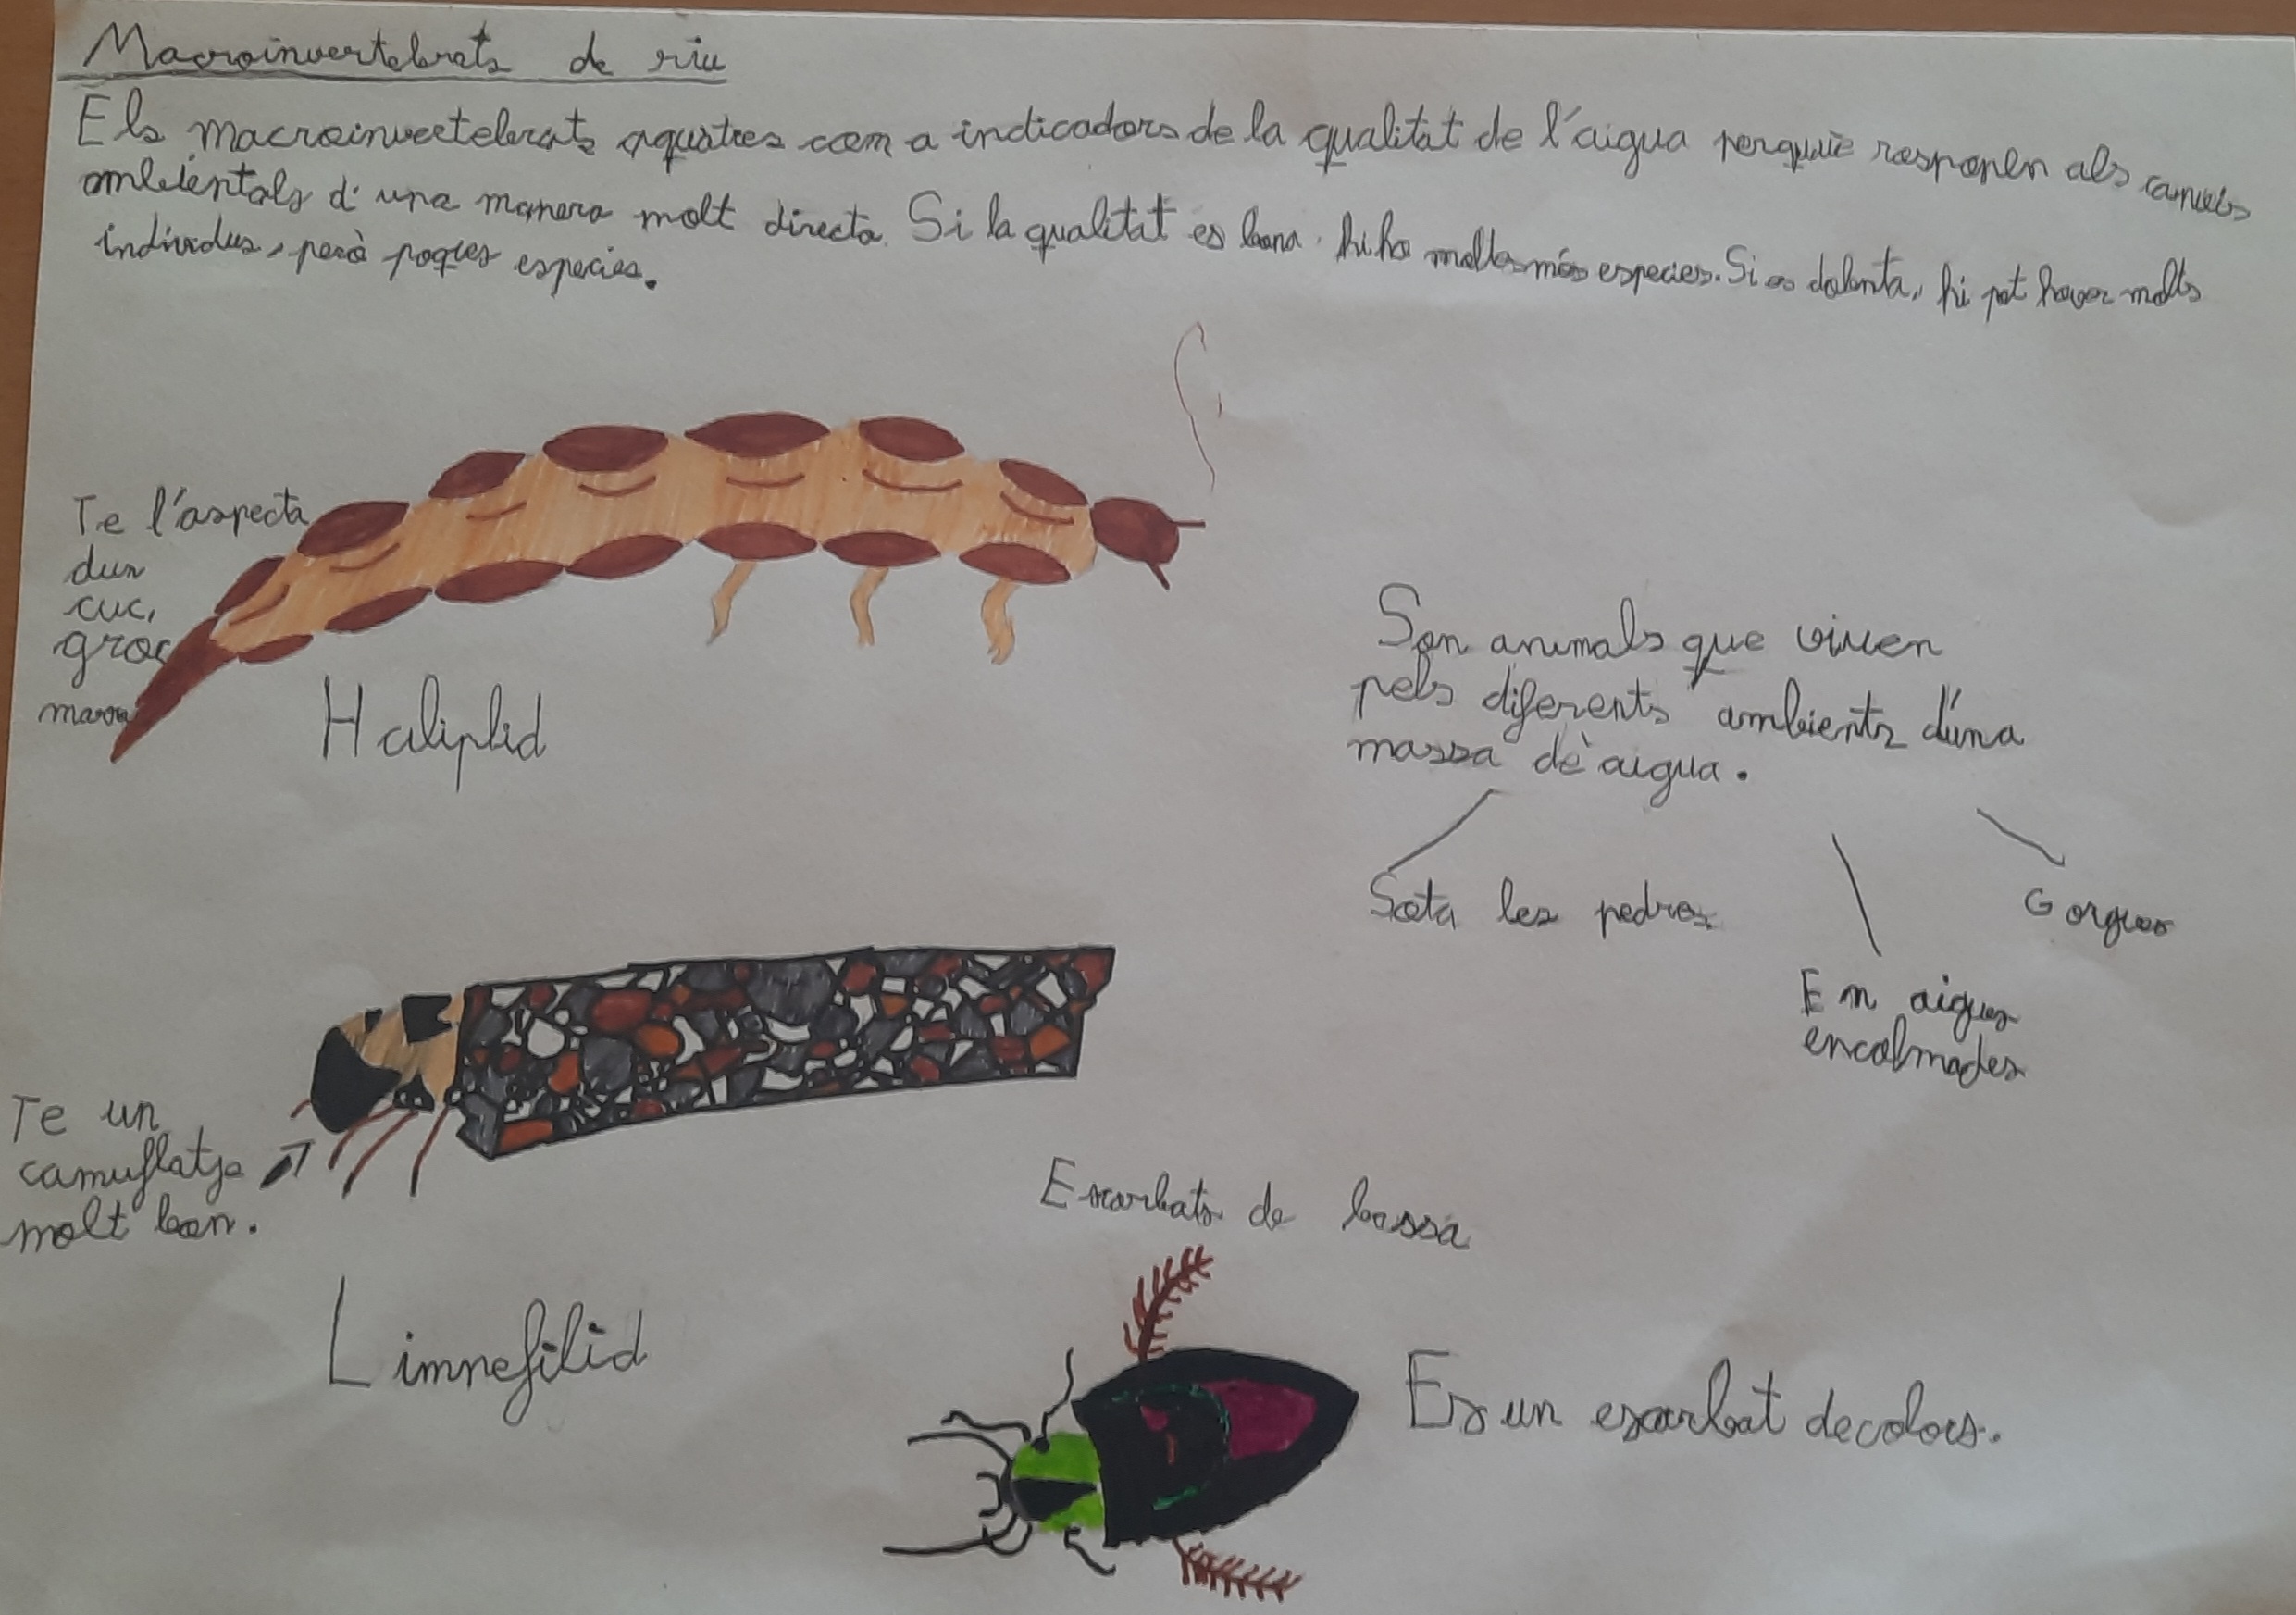 Macroinvertebrats de riu
Els macroinvertebrats aquatics com a indicadors de la qualitat de l'aigua perquè responen als canvis
ambientals d'una manera molt directa. Si la qualitat es bona, hi ha moltes més especies. Si es dolenta, hi pot haver molts
individus, però poques especies.
Te l'aspecta
dun
cuc,
groc
marro
Haliplid
Son animals que viuen
pels diferents ambients d'una
massa de aigua.
Sota les pedres
En aigues
encalmades
Gorgues
Te un
camuflatge
molt bon.
Limnefilid
Escarbats de bassa
Es un escarbat de colors.